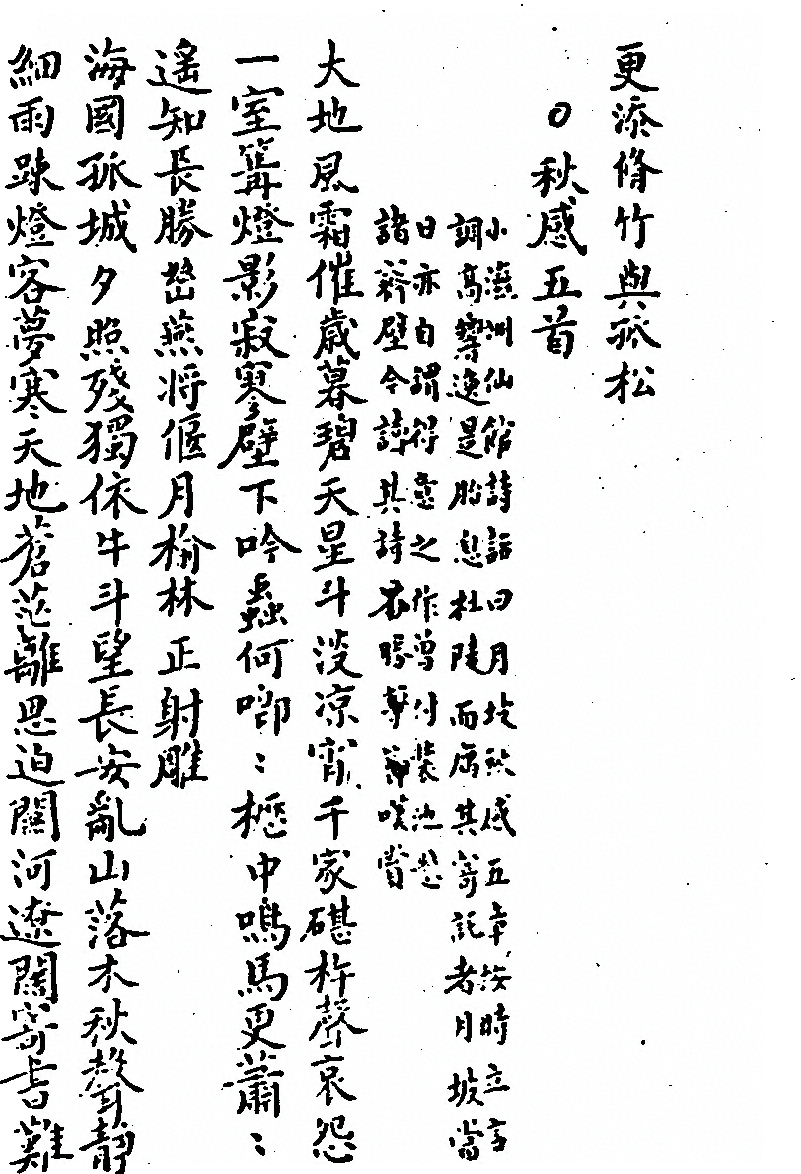 更添脩竹與孤松
○秋感五首
小瀛洲仙館詩話曰月坡秋感五章按時立言
調高響逸是胎息杜陵而属其寄託者月坡當
日亦自謂得意之作曽付装池懸
諸齋壁今讀其詩不勝嘆賞
大地風霜催歳暮碧天星斗淡凉宵千家碪杵聲哀怨
一室篝燈影寂寒壁下吟蟲何唧〻櫪中鳴馬更蕭〻
遥知長勝嵆燕将偃月榆林正射雕
海國孤城夕照殘獨依牛斗望長安亂山落木秋聲静
細雨踈燈客夢寒天地蒼茫離思迫關河遼闊寄書難